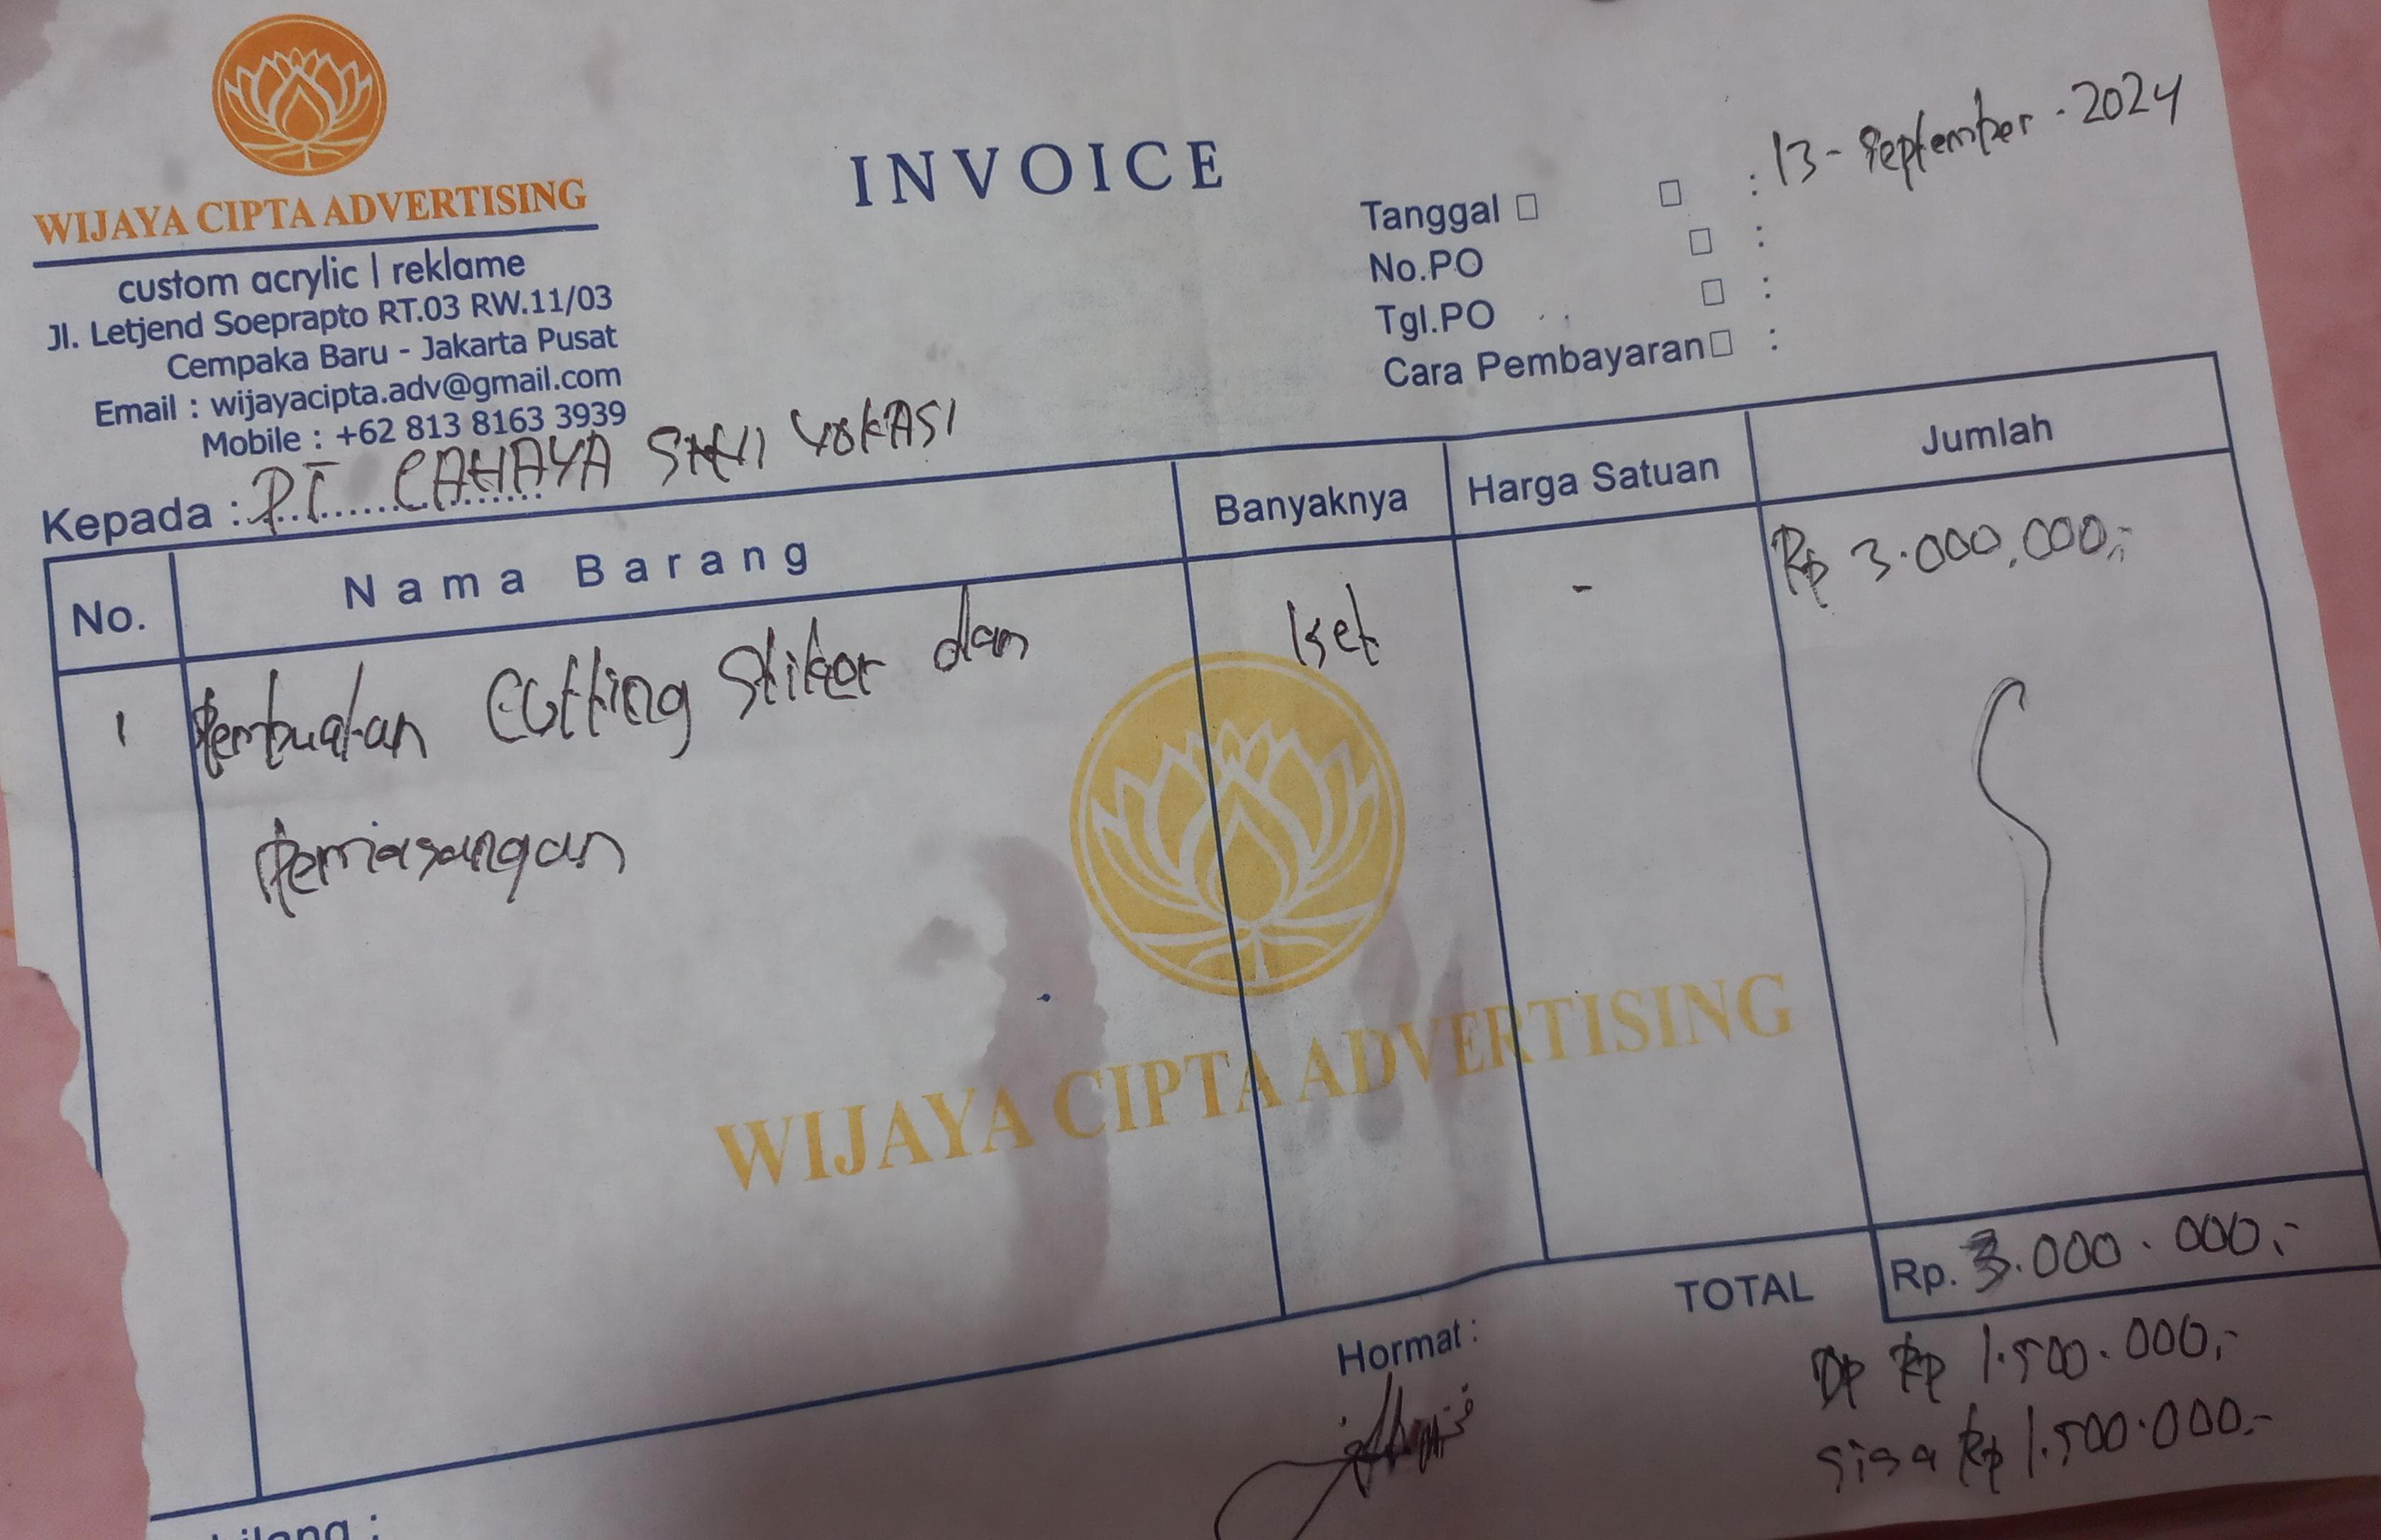 WIJAYA CIPTA ADVERTISING
custom acrylic | reklame
Jl. Letjend Soeprapto RT.03 RW.11/03
Cempaka Baru - Jakarta Pusat
Email : wijayacipta.adv@gmail.com
Mobile : +62 813 8163 3939
INVOICE
Tanggal : 13 - September - 2024
No.PO :
Tgl.PO :
Cara Pembayaran :
Kepada : PT CAHAYA VOKASI
No. Nama Barang Banyaknya Harga Satuan Jumlah
1 Pembuatan Cutting Stiker dan 1 set - Rp 3.000.000,-
Pemasangan
WIJAYA CIPTA ADVERTISING
TOTAL Rp. 3.000.000,-
Hormat :
DP Rp 1.500.000,-
Sisa Rp 1.500.000,-